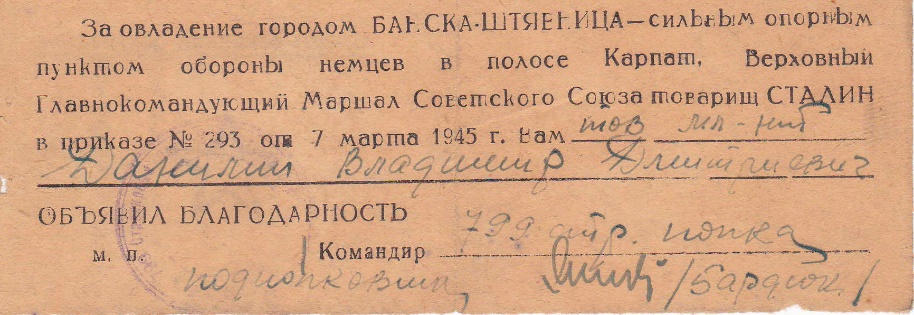 За овладение городом БАНСКА-ШТЯВНИЦА — сильным опорным
пунктом обороны немцев в полосе Карпат, Верховный
Главнокомандующий Маршал Советского Союза товарищ СТАЛИН
в приказе № 293 от 7 марта 1945 г. Вам тов мл-нт
Данилин Владимир Дмитриевич
ОБЪЯВИЛ БЛАГОДАРНОСТЬ
м. п. Командир 799 стр. полка
подполковник /Бардюк/